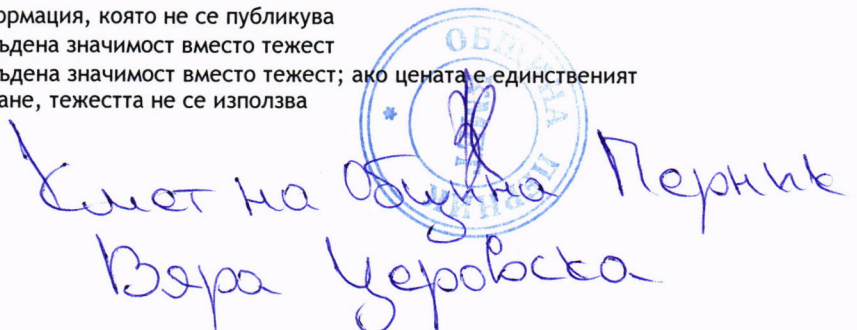 ормация, която не се публикува
ъдена значимост вместо тежест
ъдена значимост вместо тежест; ако цената е единственият
ане, тежестта не се използва
ОБЩИНА ПЕРНИК
Кмет на Община Перник
Вяра Церовска